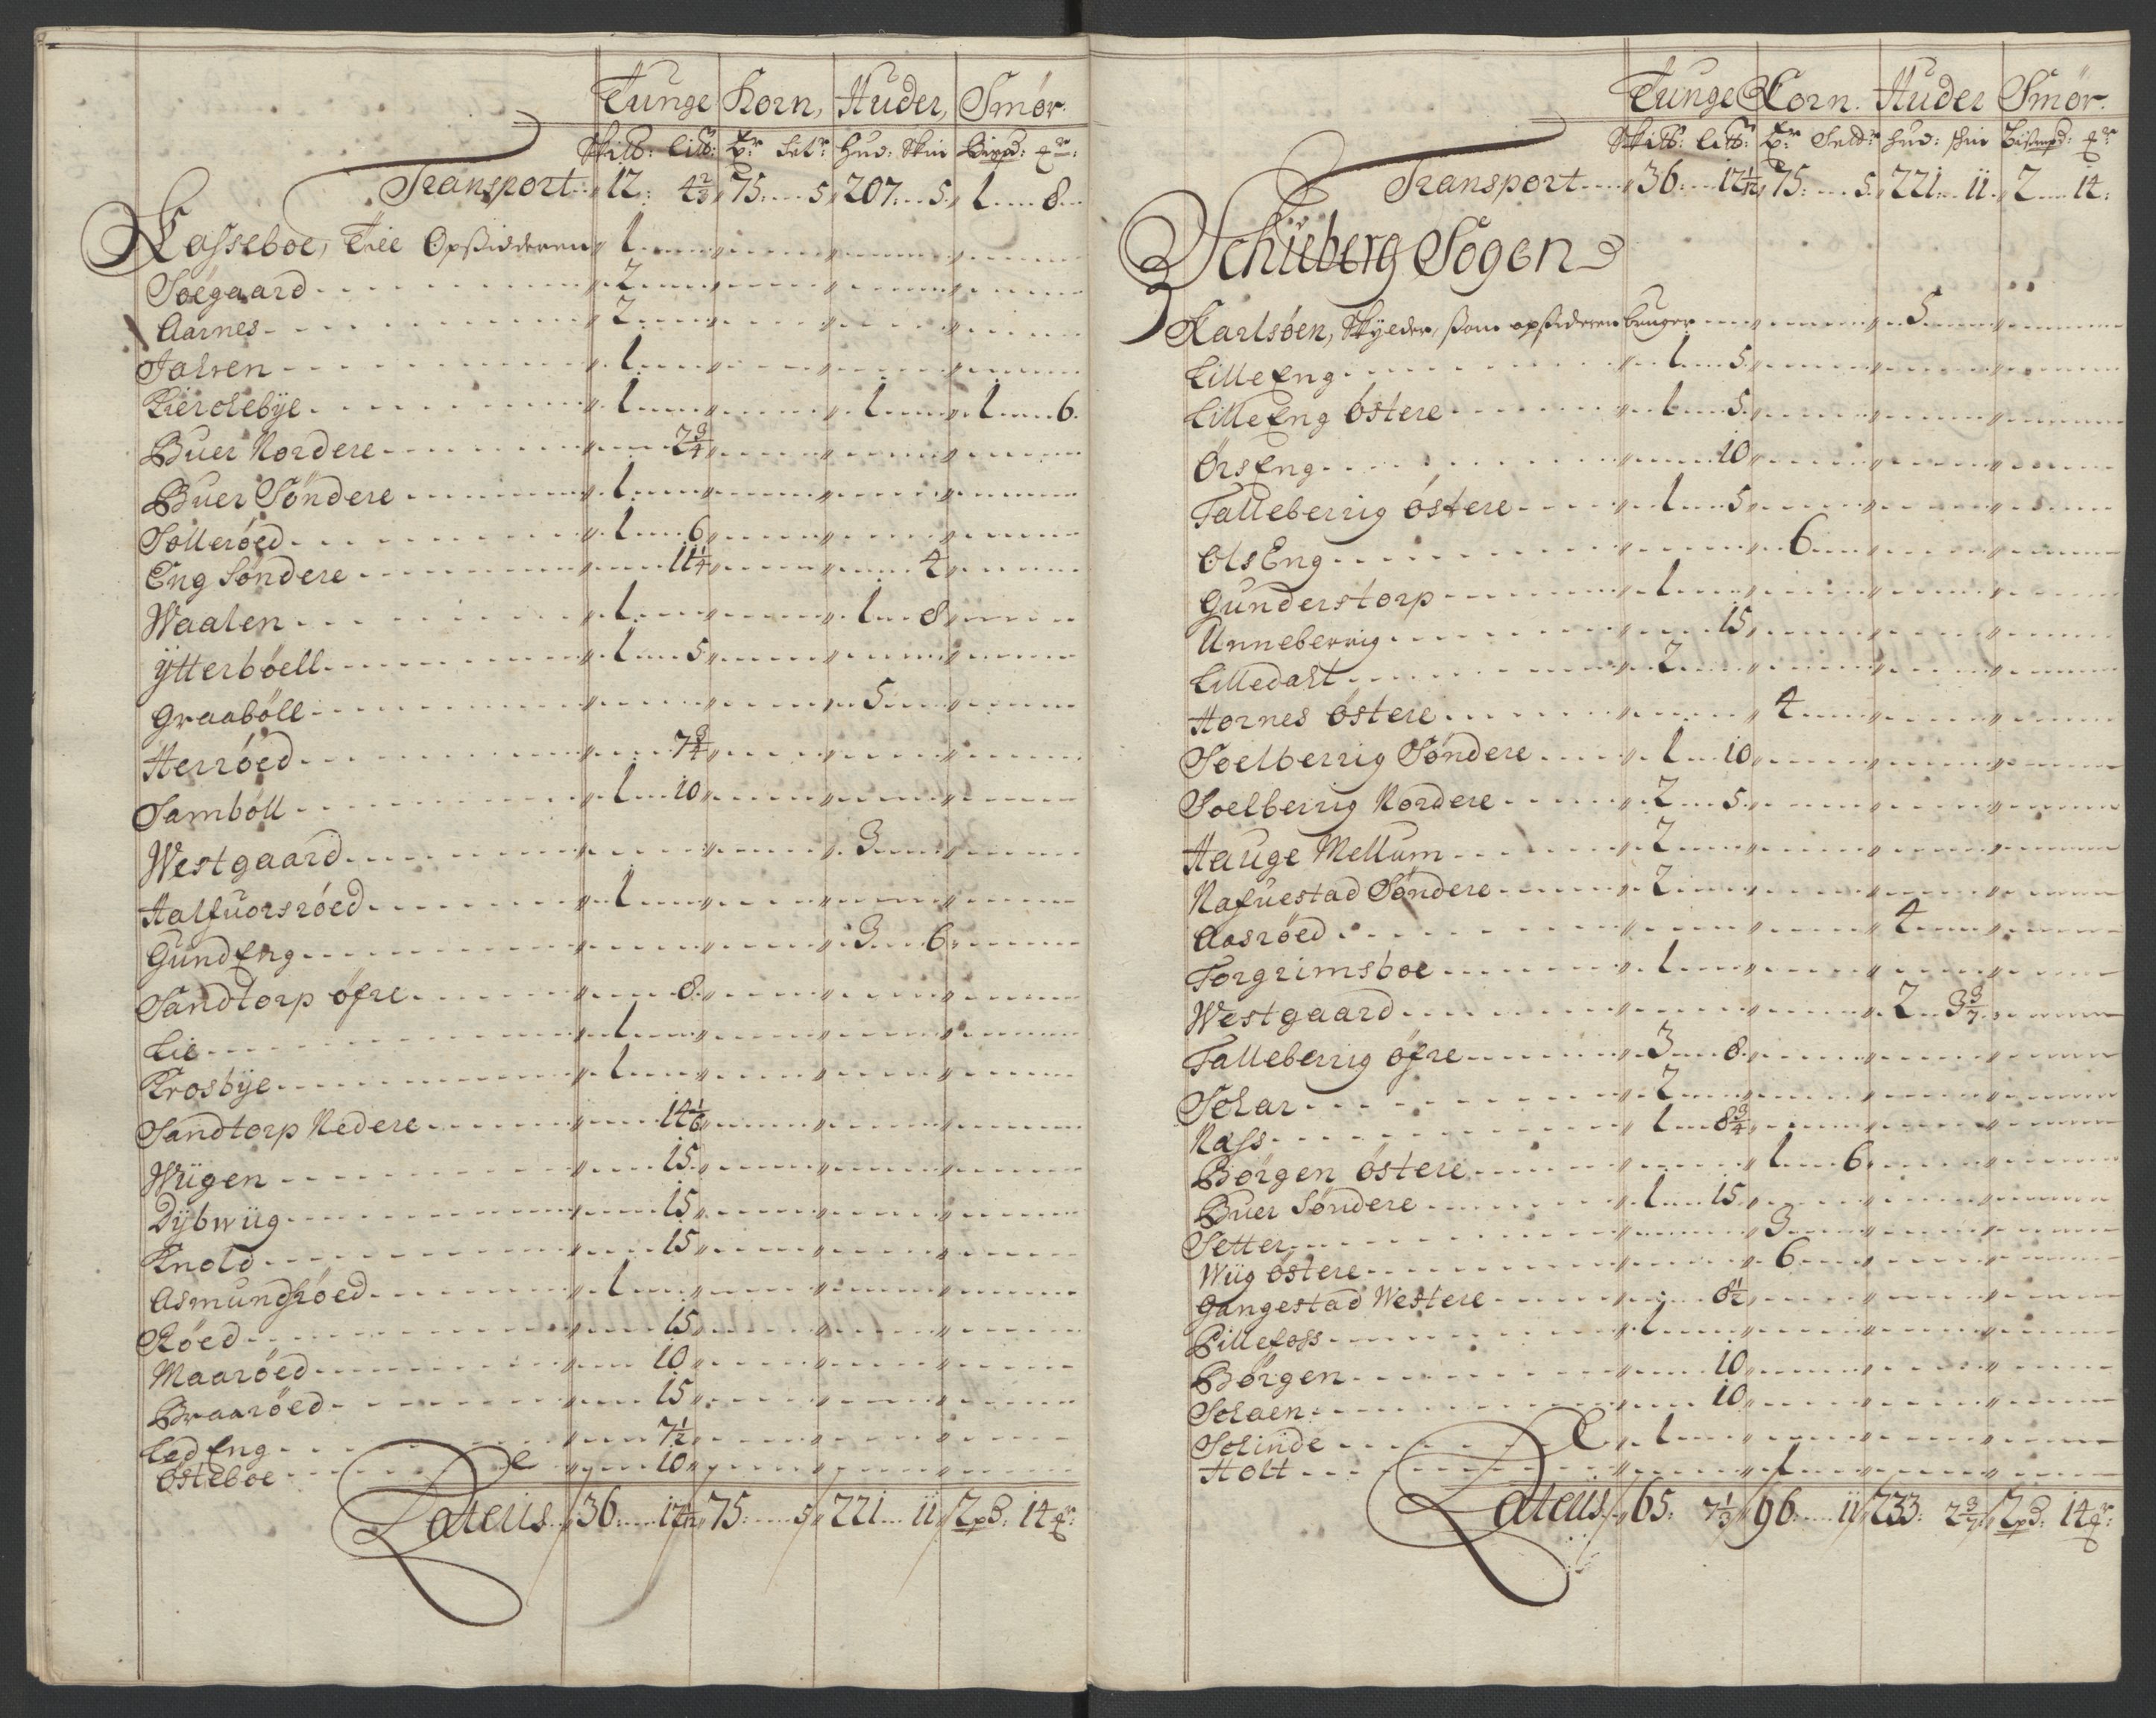 Tunge Korn, Huder, Smör.
Skilb: Lilb: Hud: Skin
Transport 12: 4 2/3 75: 5 207: 5 1 8
Kasseboe, Trie Opsidderen 1
Söegaard 2
Aarnes 2
Jalsen 1
Kierrebÿe 1 1 1 6
Buer Nordere 2 3/4
Buer Söndere 1
Solleröed 1 6
Eng Söndere 11 1/4 4
Waalen 1 1 8
Ÿtterböell 1 5
Graaböll 5
Herröed 7 3/4
Samböll 1 10
Westgaard 3
Halfuorsröed 1
GundEng 3 6
Sandtorp öfre 8
Lie 1
Krosbÿe 1
Sandtorp Nedere 14 1/6
Wiigen 15
Dÿbwiig 15
Knold 15
Asmundröed 1
Röed 15
Maaröed 10
Braaröed 15
LedEng 7 1/2
Östeboe 10
Lateris 36: 12 1/12 75: 5 221 11 2 pd: 14
Tunge Korn. Huder Smör.
Skilb: Lilb: Hud: skin Bismpd:
Transport 36: 12 1/12 75: 5 221 11 2 14:
Schieberg Sogen
Karlsöen, Skylder, som opsidderen bruger 5
LilleEng 1 5
LilleEng östere 1 5
ÖrsEng 10
Talleberrig östere 1 5
OlsEng 6
Gunderstorp 1
Unneberrig 15
Lilledalt 2
Hornes östere 4
Soelberrig Söndere 1 10
Soelberrig Nordere 2 5
Hauge Mellum 2
Nafuestad Söndere 2
Aasröed 4
Torgrimsboe 1
Westgaard 2 3 3/7
Talleberrig öfre 3 8
Solar 2
Nass 1 8 3/4
Börgen östere 1 6
Buer Söndere 1 15
Setter 3
Wiig östere 6
Gangestad Westere 8 1/2
Pillefoss 1
Börgen 10
Solaen 10
Solinde 1
Holt 1
Lateris 65: 7 1/3 96: 11 233: 2 3/7 2 pd: 14